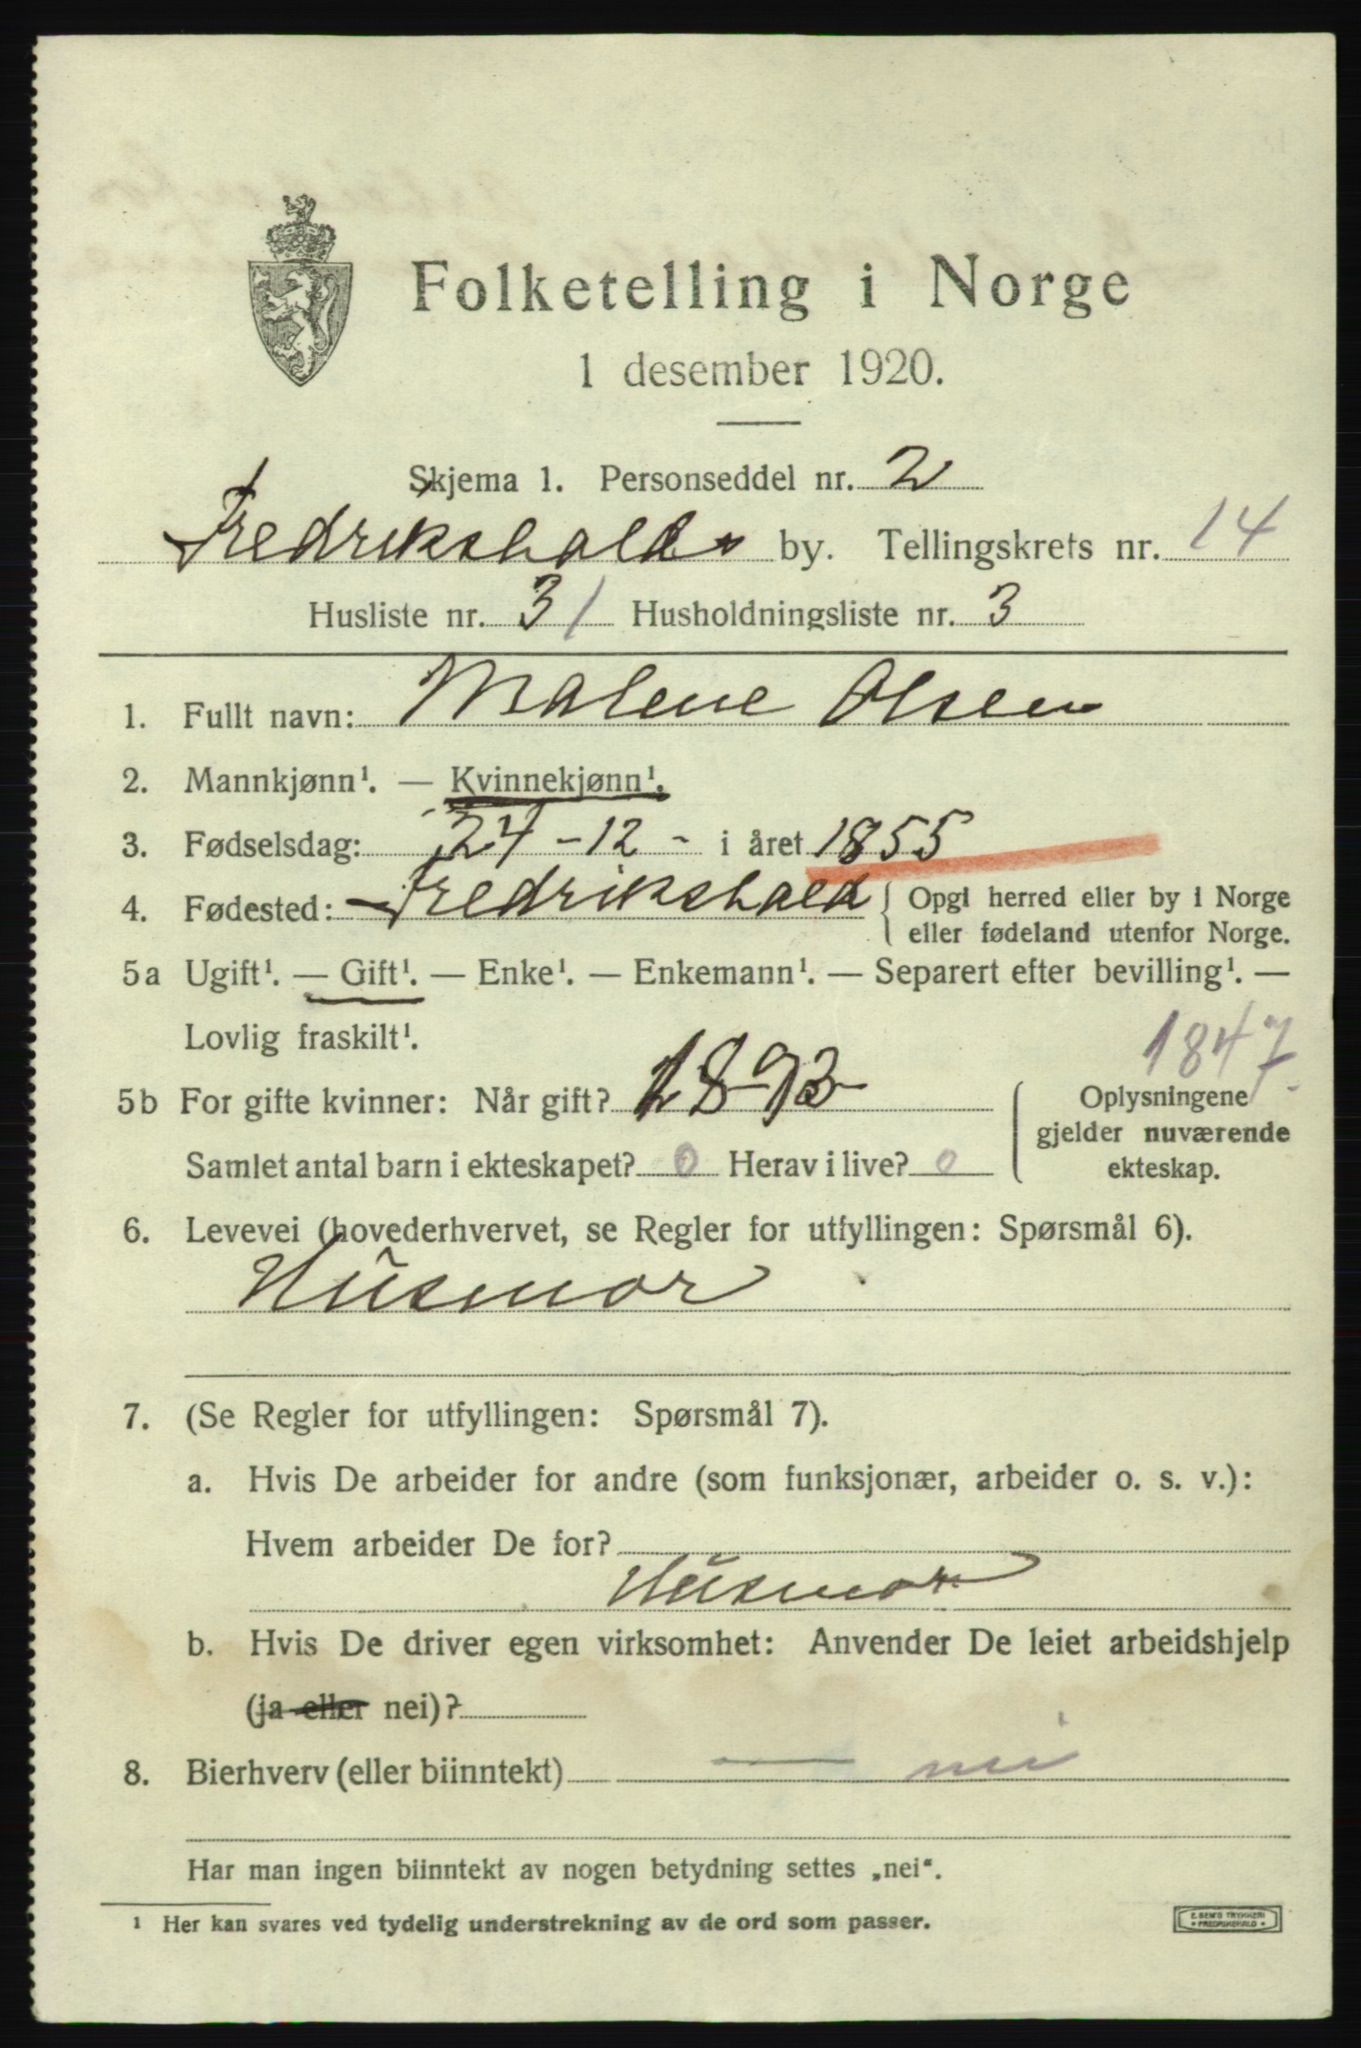 Folketelling i Norge
1 desember 1920.
Skjema 1. Personseddel nr. 2
Fredrikshald by. Tellingskrets nr. 14
Husliste nr. 31 Husholdningsliste nr. 3
1. Fullt navn: Malene Olsen
2. Mannkjønn¹. — Kvinnekjønn¹.
3. Fødselsdag: 24 - 12 - i året 1855
4. Fødested: Fredrikshald { Opgi herred eller by i Norge
eller fødeland utenfor Norge.
5a Ugift¹. — Gift¹. — Enke¹. — Enkemann¹. — Separert efter bevilling¹. —
Lovlig fraskilt¹.
1847
5b For gifte kvinner: Når gift? 1893
Samlet antal barn i ekteskapet? 0 Herav i live? 0
Oplysningene
gjelder nuværende
ekteskap.
6. Levevei (hovederhvervet, se Regler for utfyllingen: Spørsmål 6).
Husmor
7. (Se Regler for utfyllingen: Spørsmål 7).
a. Hvis De arbeider for andre (som funksjonær, arbeider o. s. v.):
Hvem arbeider De for?
Husmor
b. Hvis De driver egen virksomhet: Anvender De leiet arbeidshjelp
(ja eller nei)?
8. Bierhverv (eller biinntekt) — nei
Har man ingen biinntekt av nogen betydning settes „nei“.
¹ Her kan svares ved tydelig understrekning av de ord som passer.
E. SEM'S TRYKKERI
• FREDRIKSHALD •